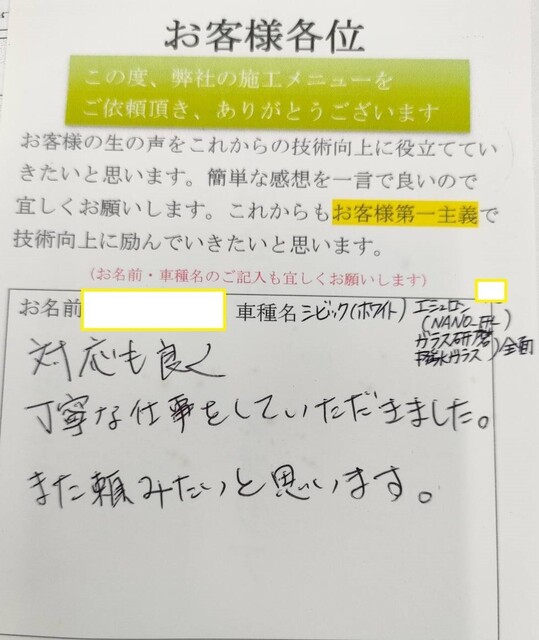 お客様各位
この度、弊社の施工メニューを
ご依頼頂き、ありがとうございます
お客様の生の声をこれからの技術向上に役立ててい
きたいと思います。簡単な感想を一言で良いので
宜しくお願いします。これからもお客様第一主義で
技術向上に励んでいきたいと思います。
(お名前・車種名のご記入も宜しくお願いします)
お名前 車種名 シビック(ホワイト)
エシュロン
(NANO-FIL)
ガラス研磨
撥水ガラス)全面
対応も良く
丁寧な仕事をしていただきました。
また頼みたいと思います。